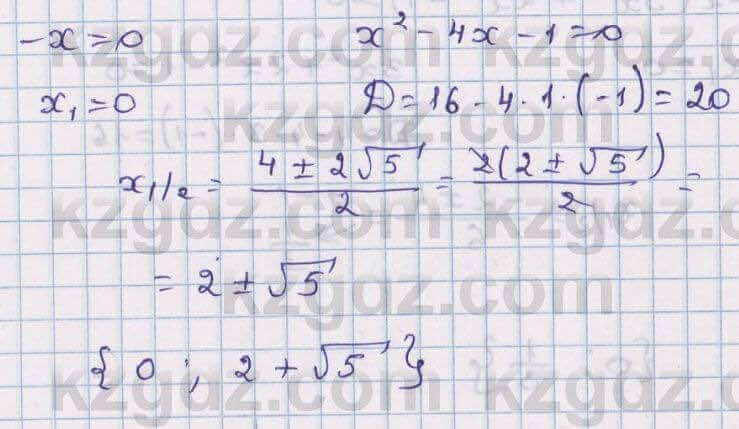 -x = 0
x² - 4x - 1 = 0
x₁ = 0
D = 16 - 4 · 1 · (-1) = 20
x₁/₂ = (4 ± 2√5)/2 = 2(2 ± √5)/2 =
= 2 ± √5
{ 0 ; 2 + √5 }
kzgdz.com
kzgdz.com
kzgdz.com
kzgdz.com
kzgdz.com